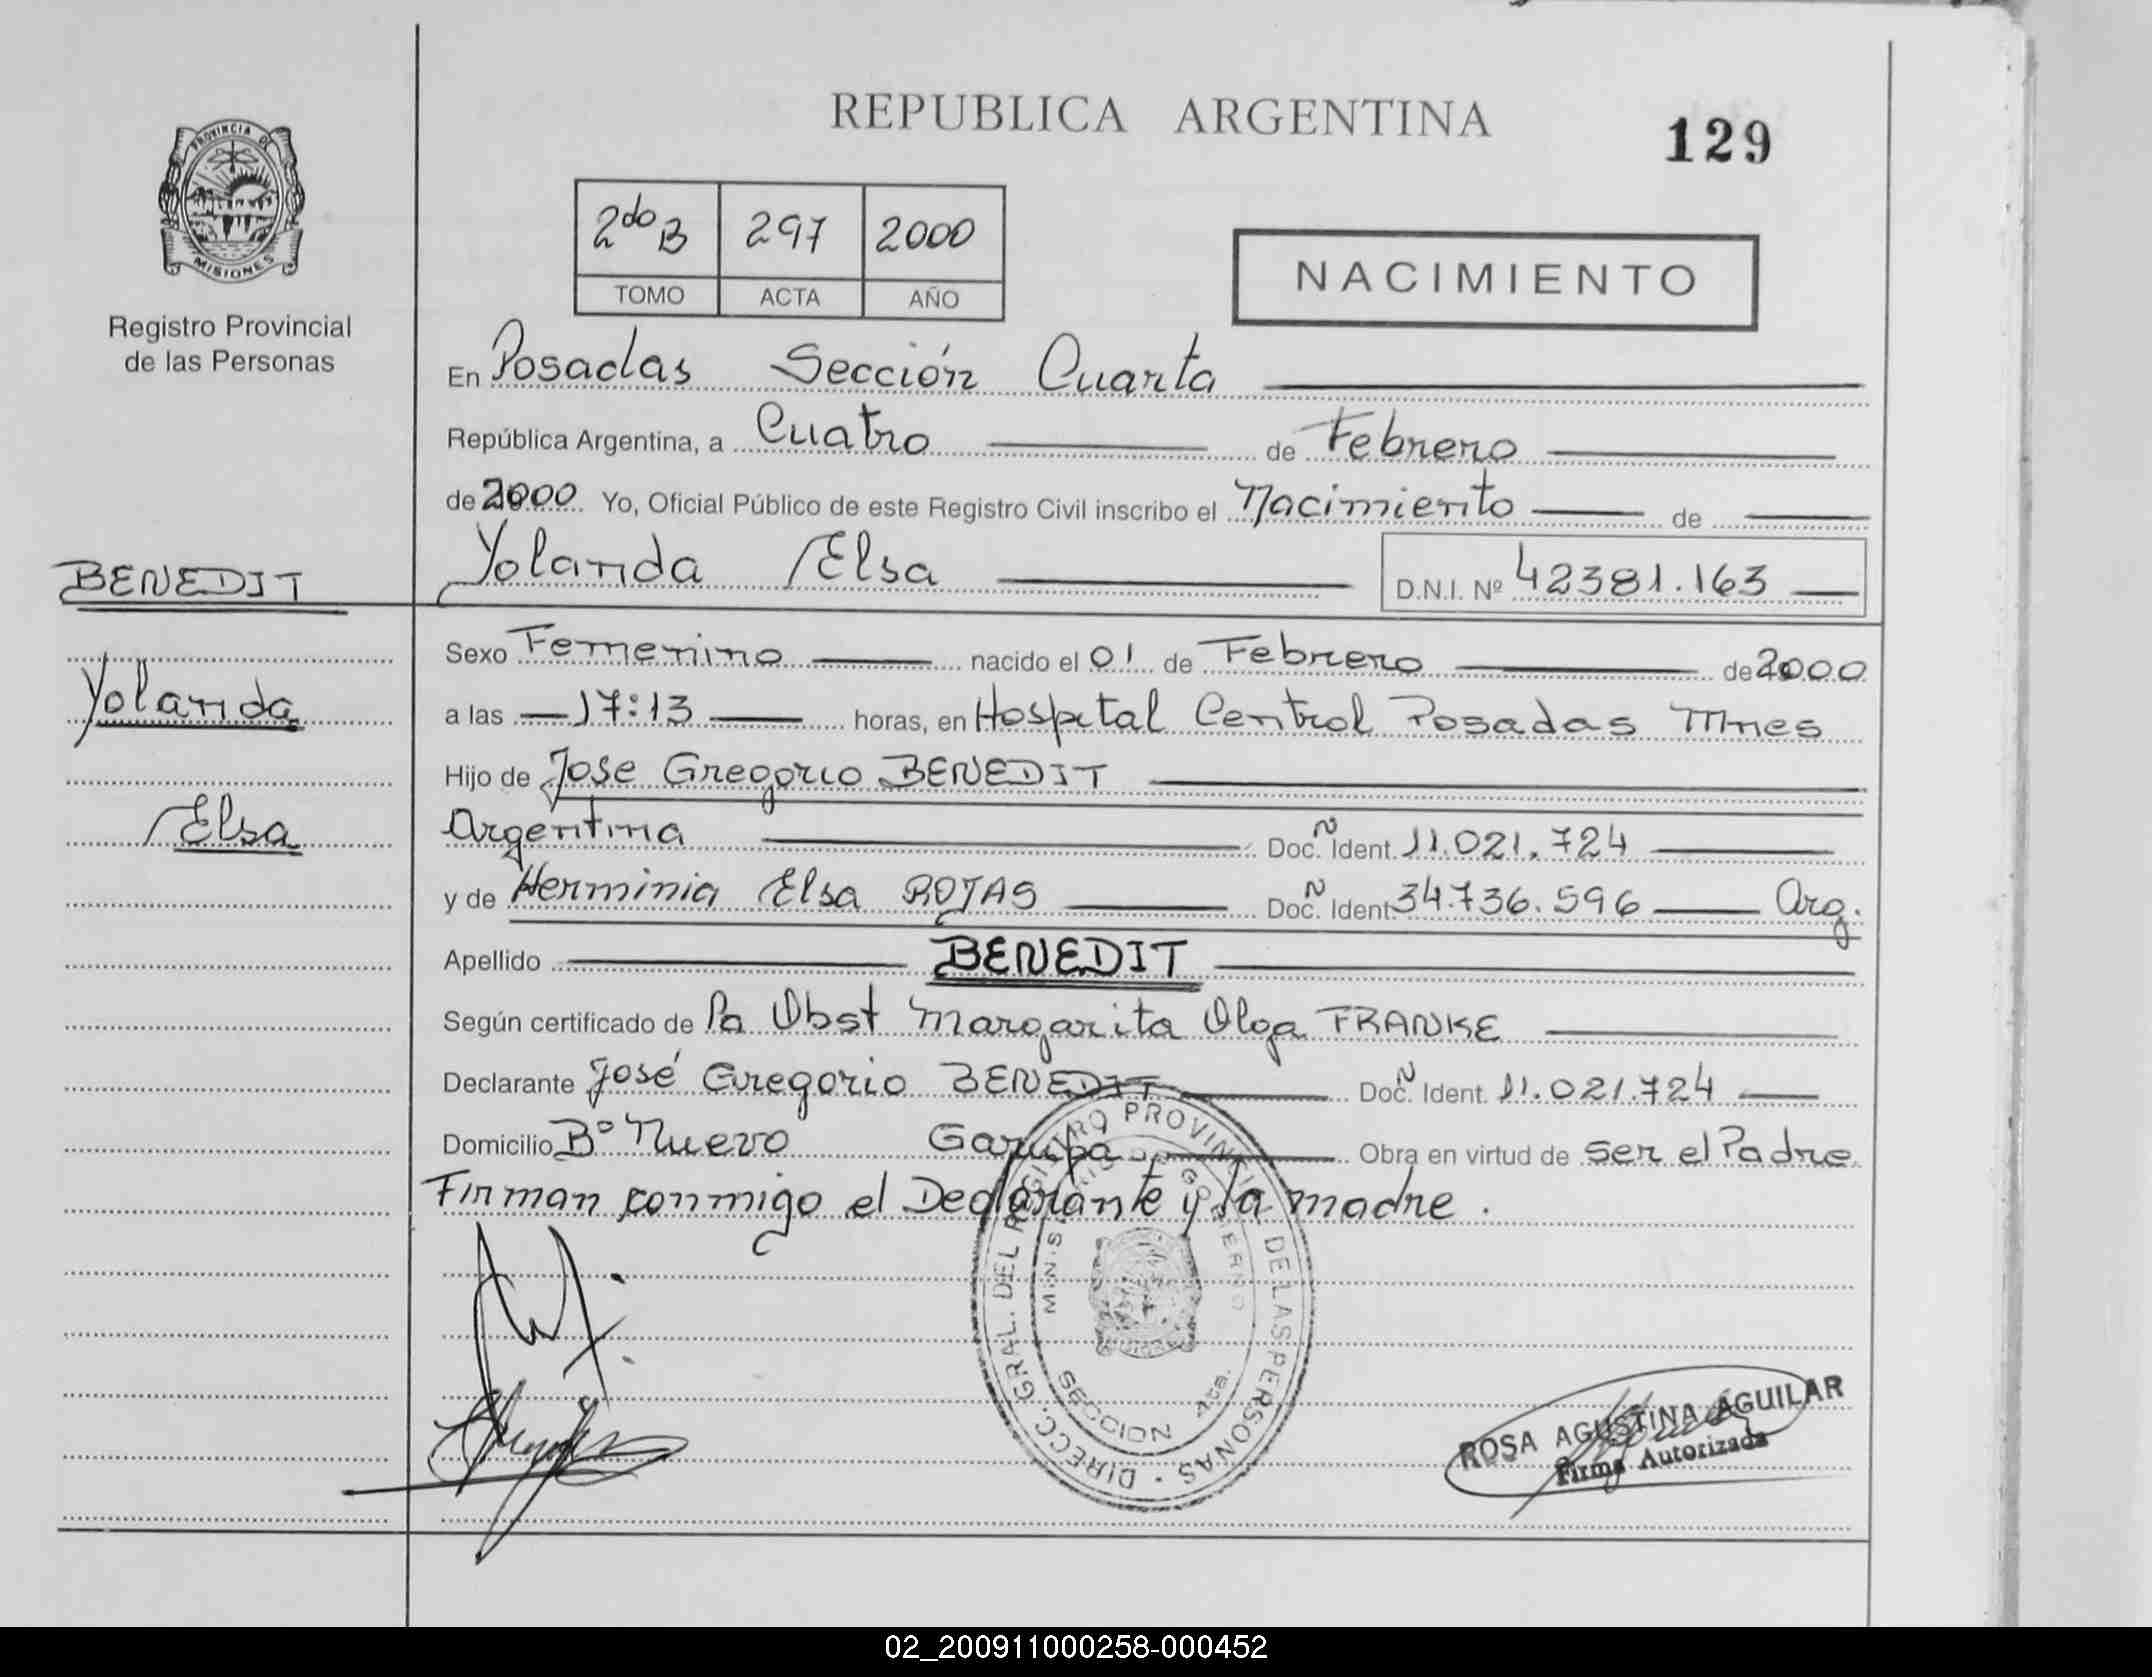 REPUBLICA ARGENTINA
129
PROVINCIA DE
MISIONES
Registro Provincial
de las Personas
2do B 297 2000
TOMO ACTA AÑO
NACIMIENTO
En Posadas Sección Cuarta
República Argentina, a Cuatro de Febrero
de 2000 Yo, Oficial Público de este Registro Civil inscribo el Nacimiento de
BENEDIT
Yolanda Elsa D.N.I. Nº 42381.163
Sexo Femenino nacido el 01 de Febrero de 2000
Yolanda
a las 17:13 horas, en Hospital Central Posadas Mnes
Hijo de Jose Gregorio BENEDIT
Elsa
Argentina Doc. N Ident. 11.021.724
y de Herminia Elsa ROJAS Doc. N Ident. 34.736.596 Arg.
Apellido BENEDIT
Según certificado de Pa Obst Margarita Olga FRANKE
Declarante José Gregorio BENEDIT Doc. N Ident. 11.021.724
Domicilio Bº Nuevo Garupa Obra en virtud de ser el Padre
Firman conmigo el Declarante y la madre.
DIRECC. GRAL. DEL REGISTRO PROVINCIAL DE LAS PERSONAS
MINISTERIO DE GOBIERNO
SECCION 4ta.
ROSA AGUSTINA AGUILAR
Firma Autorizada
02_200911000258-000452